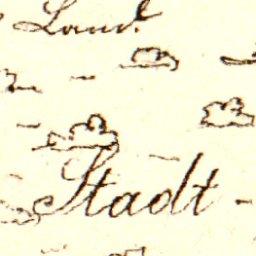 Land.
Stadt